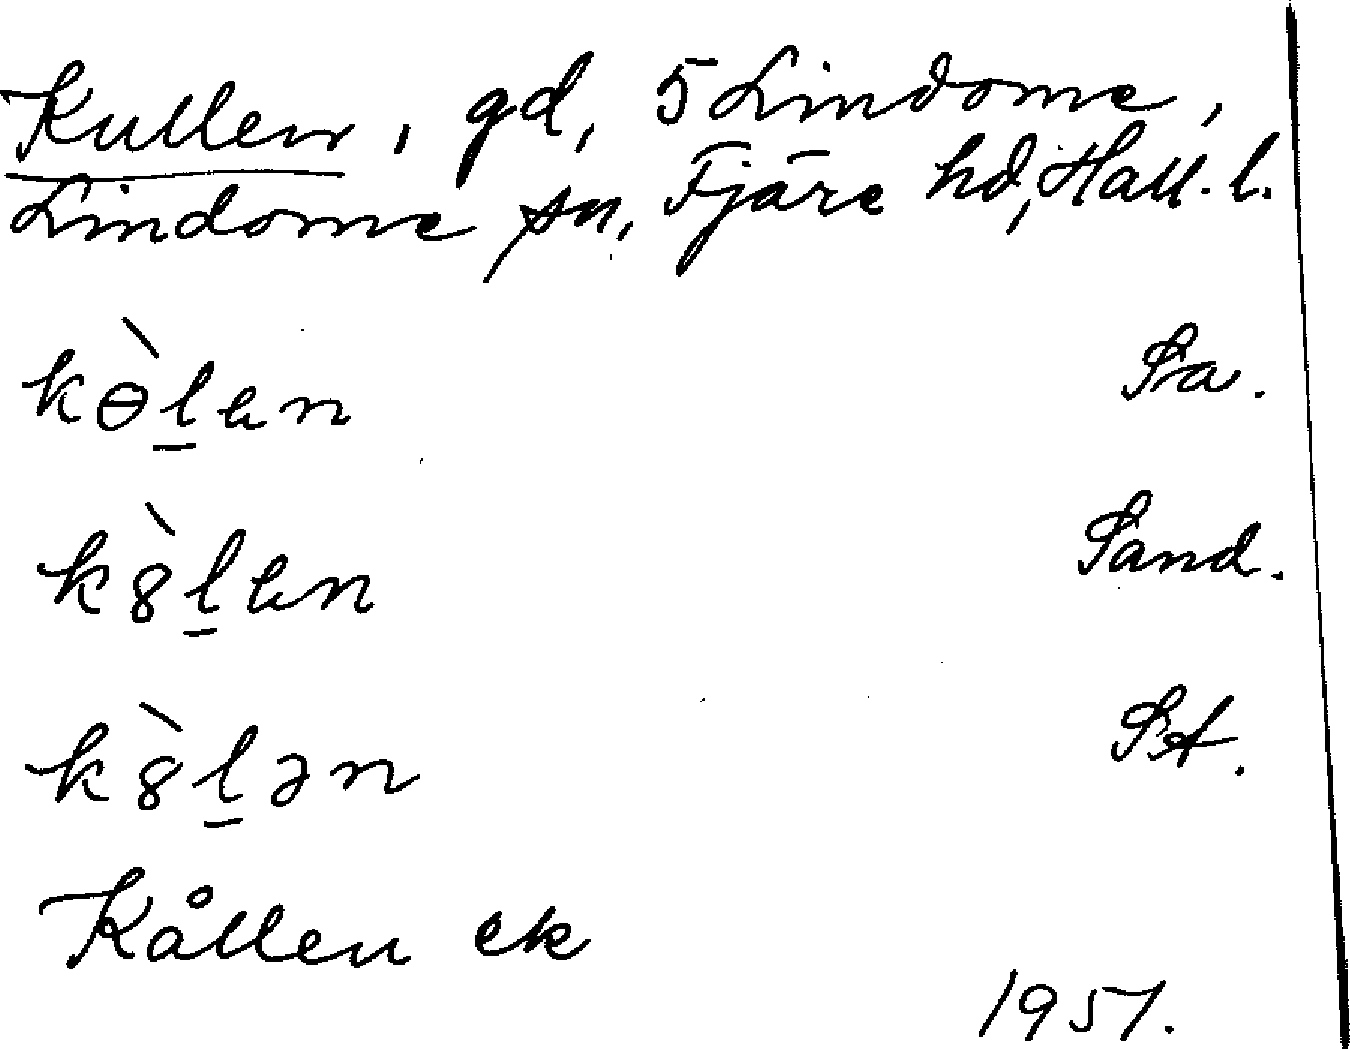 Kullen, gd, 5 Lindome,
Lindome sn, Fjäre hd, Hall. l.
kɵ̀l̲ɐn Sa.
k8̀l̲ɐn Sand.
k8̀l̲ən St.
Kållen ek
1951.